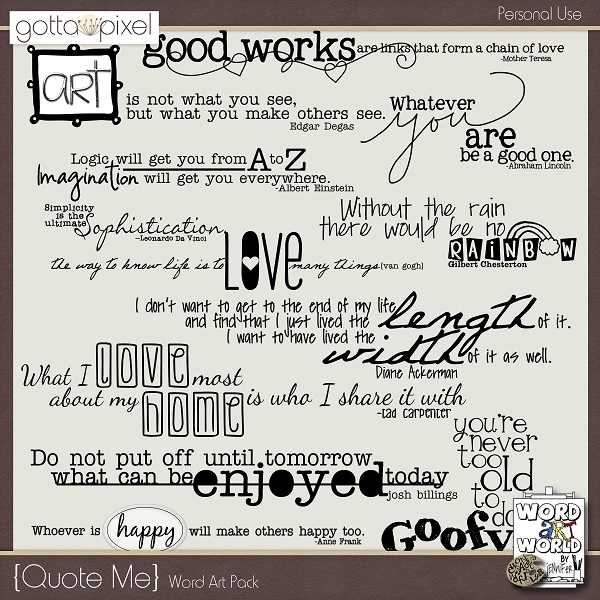 gotta pixel
Personal Use
good works are links that form a chain of love
-Mother Teresa
art
is not what you see,
but what you make others see.
Edgar Degas
Whatever
you
are
be a good one.
-Abraham Lincoln
Logic will get you from A to Z
Imagination will get you everywhere.
-Albert Einstein
Simplicity
is the
ultimate
Sophistication
-Leonardo Da Vinci
Without the rain
there would be no
RAINBOW
Gilbert Chesterton
the way to know life is to LOVE many things (van gogh)
I don't want to get to the end of my life
and find that I just lived the length of it.
I want to have lived the
width of it as well.
Diane Ackerman
What I love most
about my home is who I share it with
-tad carpenter
Do not put off until tomorrow
what can be enjoyed today
josh billings
you're
never
too
old
to
do
Goofy
Whoever is happy will make others happy too.
-Anne Frank
WORD
aRt
WORLD
BY
JENNIFER
{Quote Me} Word Art Pack